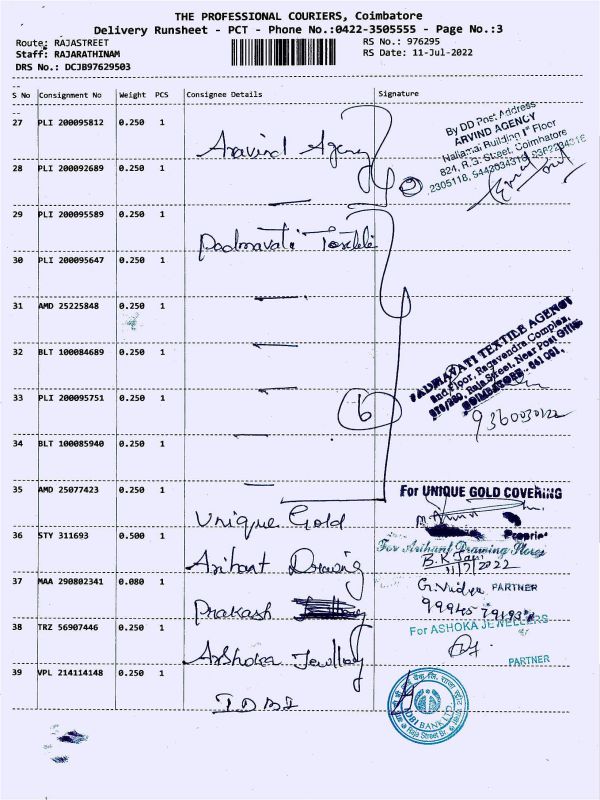 THE PROFESSIONAL COURIERS, Coimbatore
Delivery Runsheet - PCT - Phone No.:0422-3505555 - Page No.:3
Route: RAJASTREET RS No.: 976295
Staff: RAJARATHINAM RS Date: 11-Jul-2022
DRS No.: DCJB97629503
S No Consignment No Weight PCS Consignee Details Signature
27 PLI 200095812 0.250 1
Aravind Agency
By DD Post Address
ARVIND AGENCY
Nallamai Building 1st Floor
824, R.G. Street, Coimbatore
28 PLI 200092689 0.250 1
29 PLI 200095589 0.250 1
Padmavati Textile
30 PLI 200095647 0.250 1
31 AMD 25225848 0.250 1
32 BLT 100084689 0.250 1
PADMAVATI TEXTILE AGENCY
2nd Floor, Ragavendra Complex,
Raja Street, Near Post Office
COIMBATORE - 641 001.
33 PLI 200095751 0.250 1
6
34 BLT 100085940 0.250 1
35 AMD 25077423 0.250 1
Unique Gold
For UNIQUE GOLD COVERING
36 STY 311693 0.500 1
Arihant Drawing
For Arihant Drawing Stores
11/7/2022
37 MAA 290802341 0.080 1
Prakash
PARTNER
38 TRZ 56907446 0.250 1
Arshoka Jewllary
For ASHOKA JEWELLERS
PARTNER
39 VPL 214114148 0.250 1
IDBI
IDBI BANK LTD.
Raja Street Br.